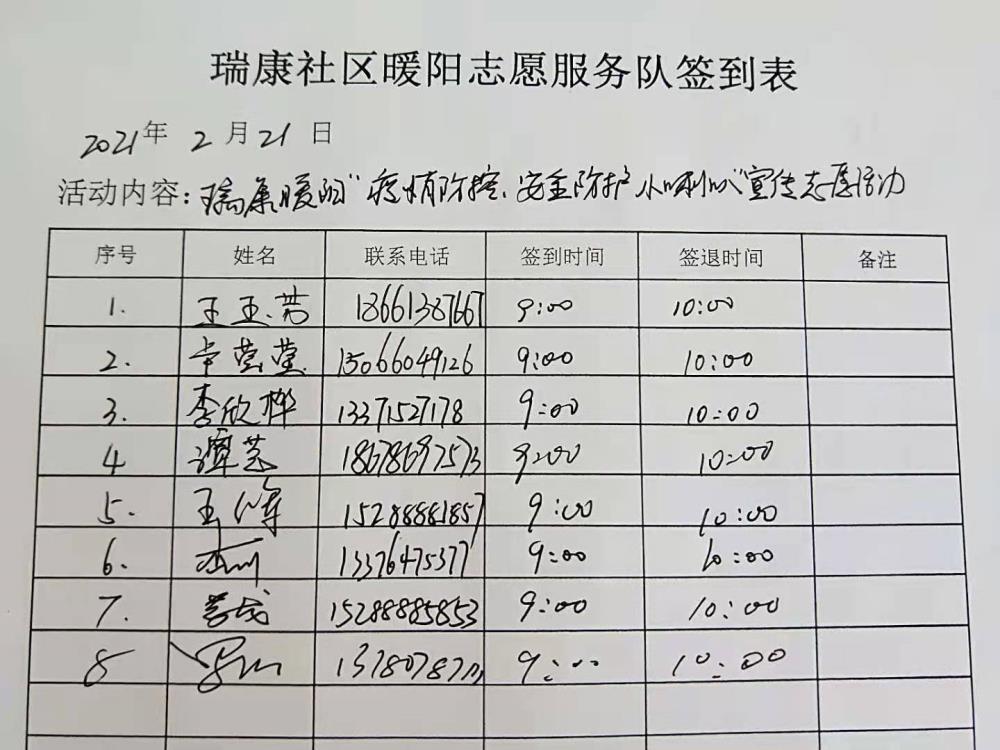 瑞康社区暖阳志愿服务队签到表
2021年 2 月 21 日
活动内容：瑞康暖阳“疫情防控、安全防护 宣传志愿活动
序号 姓名 联系电话 签到时间 签退时间 备注
1. 王亚芳 18661387667 9:00 10:00
2. 莹莹 15066049126 9:00 10:00
3. 李欣桦 13371527178 9:00 10:00
4 谭艺 18678697573 9:00 10:00
5. 王 15288881857 9:00 10:00
6. 13376475377 9:00 10:00
7. 15288885853 9:00 10:00
8 9:00 10:00